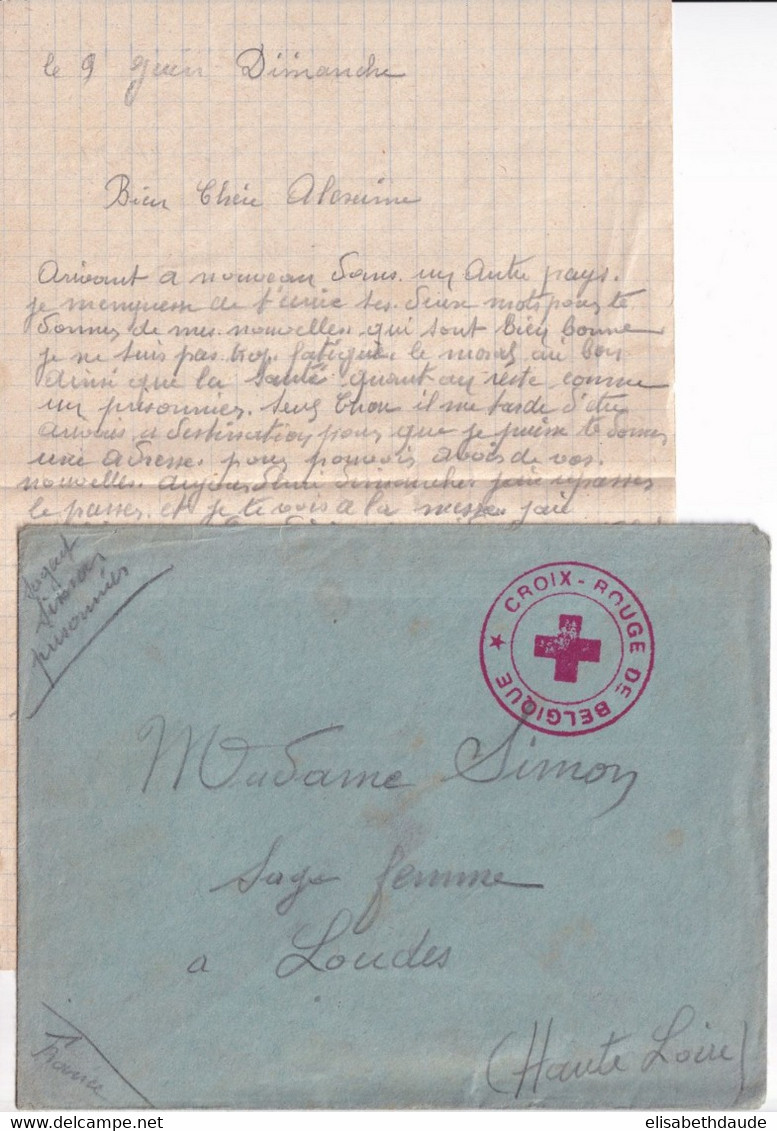 le 9 Juin Dimanche
Bien Chère
Arivant a nouveau dans un Autre pays.
je m'enpresse de t'écrire ses deux mots pour te
donner de mes nouvelles qui sont bien bonne
je ne suis pas trop fatigué. le moral ai bon
ainsi que la santé quant au reste comme
un prisonnier. Seul Chose il me tarde d'être
arivais a destination pour que je puisse te donner
une adresse pour pouvoir avoir de vos.
nouvelles. aujourd'hui dimanche j'aie repasser
le passer et je te vois a la messe j'aie
Sagent
Simon
prisonnier
★ CROIX-ROUGE DE BELGIQUE
Madame Simon
Sage femme
a Loudes
(Haute Loire)
France
elisabethdaude